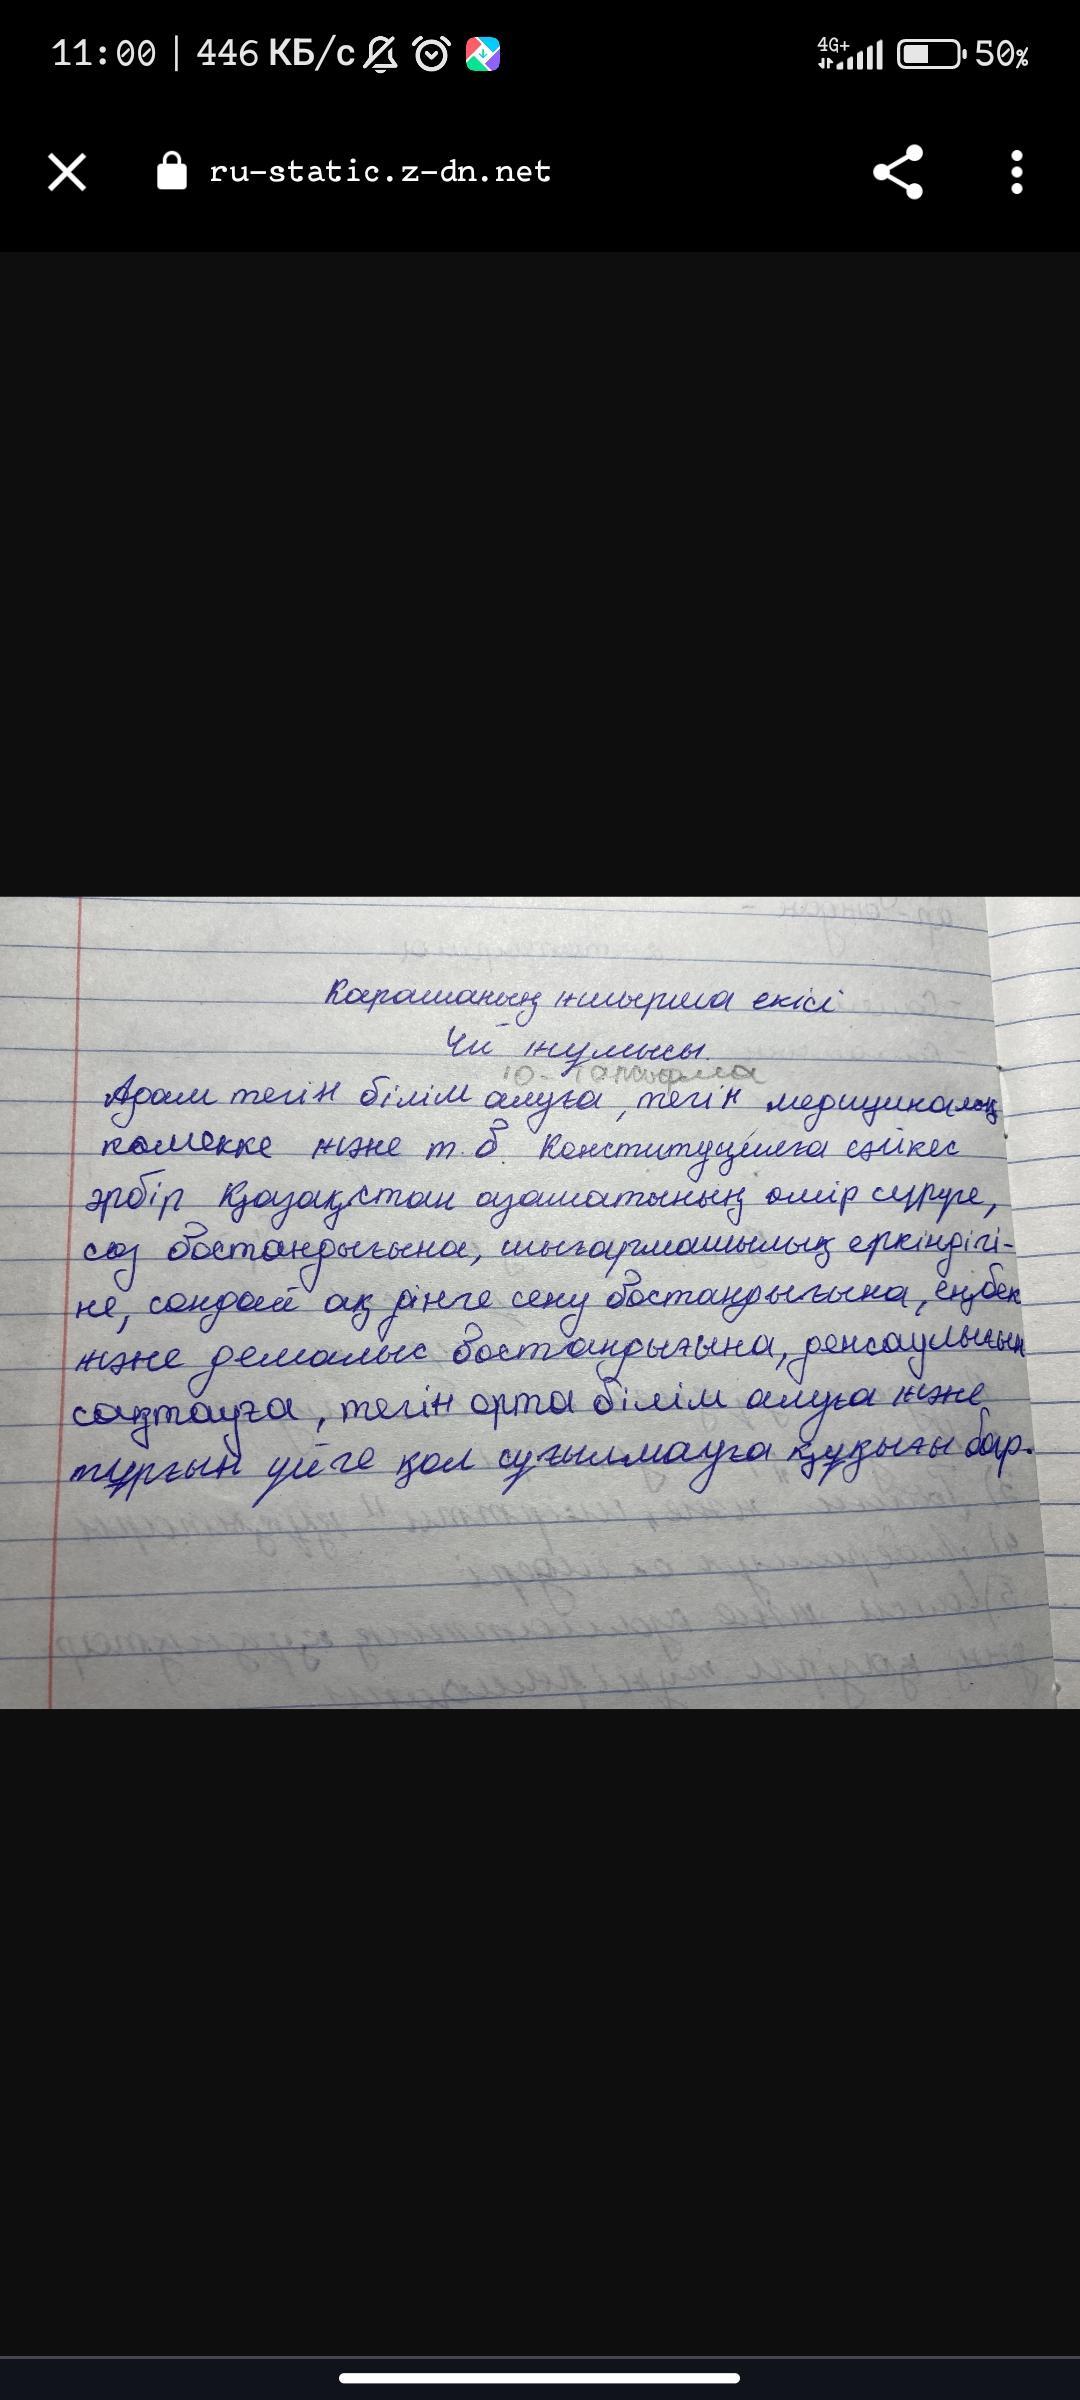 11:00 | 446 КБ/с 4G+ 50%
ru-static.z-dn.net
Қарашаның жиырма екісі
Үй жұмысы
10-тапсырма
Адам тегін білім алуға, тегін медициналық
көмекке және т.б. Конституцияға сәйкес
әрбір Қазақстан азаматының өмір сүруге,
сөз бостандығына, шығармашылық еркіндігі-
не, сондай ақ дінге сену бостандығына, еңбек
және демалыс бостандығына, денсаулығын
сақтауға, тегін орта білім алуға және
тұрғын үйге қол сұғылмауға құқығы бар.